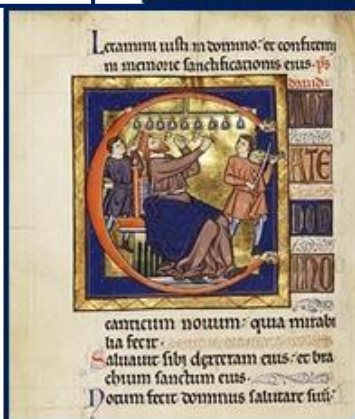 Letamini iusti in domino: et confitemi
ni memorie sanctificationis eius. ps
dauid:
C
AN
TATE
DOM
INO
canticum nouum: quia mirabi
lia fecit.
Saluauit sibi dextera eius: et bra
chium sanctum eius.
Notum fecit dominus salutare suu: